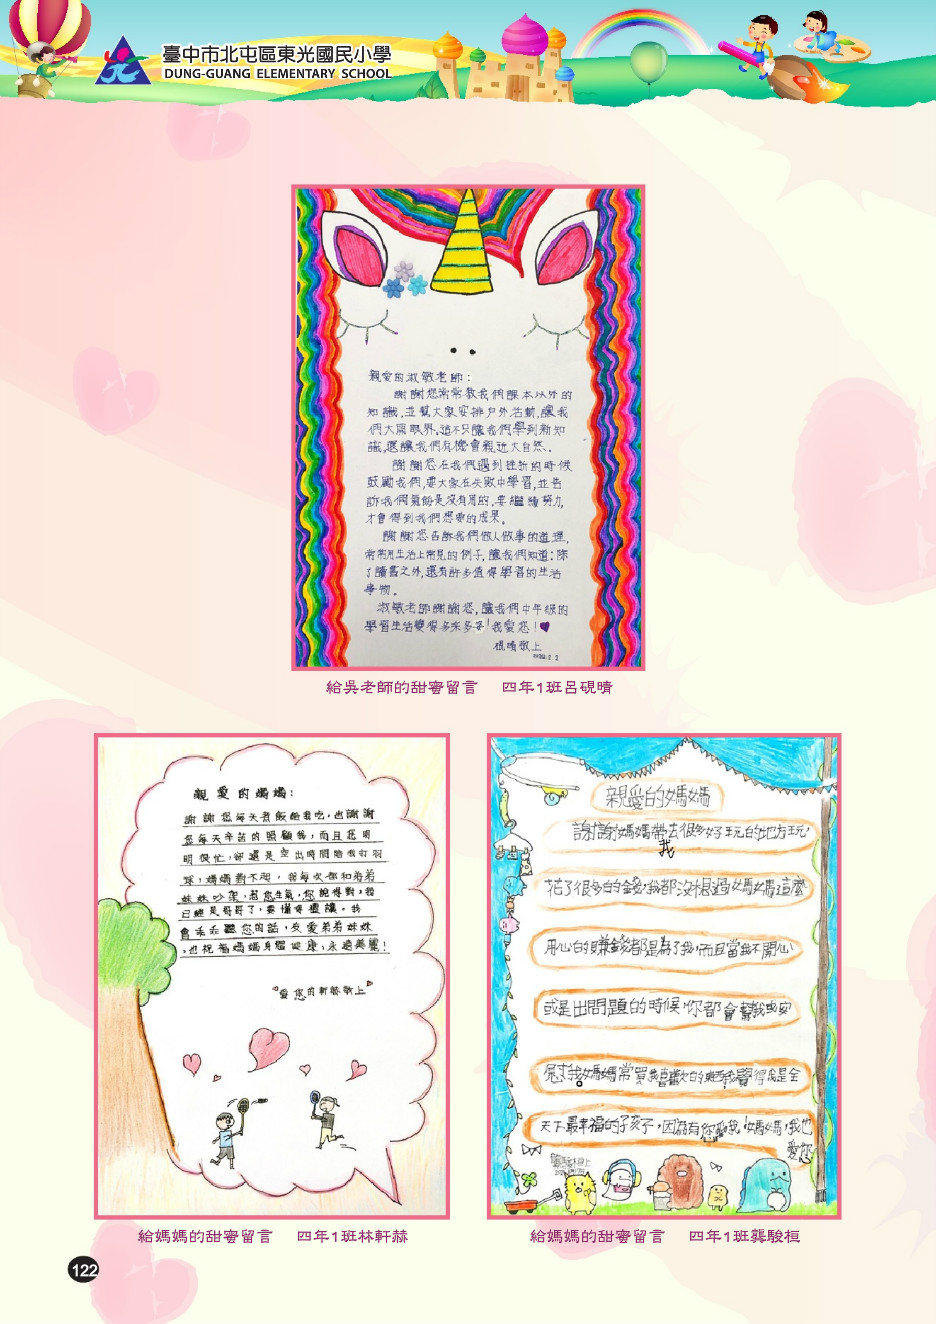 臺中市北屯區東光國民小學
DUNG-GUANG ELEMENTARY SCHOOL
親愛的淑敏老師：
謝謝您常常教我們課本以外的
知識,並幫大家安排戶外活動,讓我
們大開眼界,這不只讓我們學到新知
識,還讓我們有機會親近大自然。
謝謝您在我們遇到挫折的時候
鼓勵我們,要大家在失敗中學習,並告
訴我們氣餒是沒有用的,要繼續努力,
才會得到我們想要的成果。
謝謝您告訴我們做人做事的道理,
常常用生活上常見的例子,讓我們知道：除
了讀書之外,還有許多值得學習的生活
事物。
淑敏老師謝謝您,讓我們中年級的
學習生活變得多采多姿!我愛您!
硯晴敬上
給吳老師的甜蜜留言 四年1班呂硯晴
親愛的媽媽：
謝謝您每天煮飯給我吃,也謝謝
您每天辛苦的照顧我,而且您明
明很忙,卻還是空出時間陪我打羽
球,媽媽對不起,我每次都和弟弟
妹妹吵架,惹您生氣,您說得對,我
已經是哥哥了,要懂得禮讓。我
會乖乖聽您的話,友愛弟弟妹妹
,也祝福媽媽身體健康,永遠美麗!
愛您的軒赫敬上
給媽媽的甜蜜留言 四年1班林軒赫
親愛的媽媽
謝謝媽媽帶我去很多好玩的地方玩,
花了很多的錢,我都沒想過媽媽這麼
用心的賺錢都是為了我,而且當我不開心
或是出問題的時候,你都會幫我或安
慰我。媽媽常買我喜歡的東西,我覺得我是全
天下最幸福的孩子,因為有您愛我,媽媽,我也
愛您
給媽媽的甜蜜留言 四年1班龔駿桓
122